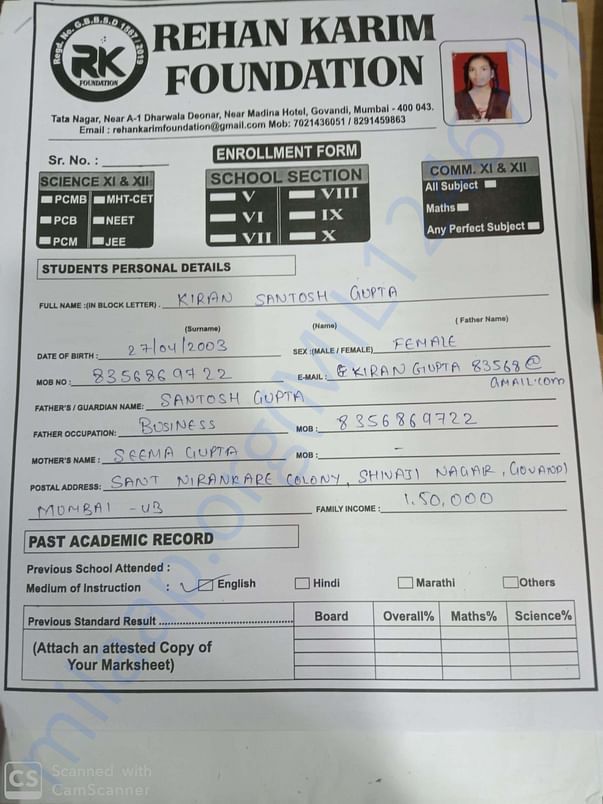 Regd. No. G.B.B.S.D 1567/2019
RK
FOUNDATION
REHAN KARIM
FOUNDATION
Tata Nagar, Near A-1 Dharwala Deonar, Near Madina Hotel, Govandi, Mumbai - 400 043.
Email : rehankarimfoundation@gmail.com Mob: 7021436051 / 8291459863
Sr. No. :
ENROLLMENT FORM
SCIENCE XI & XII
PCMB MHT-CET
PCB NEET
PCM JEE
SCHOOL SECTION
V VIII
VI IX
VII X
COMM. XI & XII
All Subject
Maths
Any Perfect Subject
STUDENTS PERSONAL DETAILS
FULL NAME :(IN BLOCK LETTER) . KIRAN SANTOSH GUPTA
(Surname) (Name) ( Father Name)
DATE OF BIRTH : 27/04/2003 SEX :(MALE / FEMALE) FEMALE
MOB NO : 8356869722 E-MAIL : KIRAN GUPTA 83568@
GMAIL.COM
FATHER'S / GUARDIAN NAME: SANTOSH GUPTA
FATHER OCCUPATION: BUSINESS MOB : 8356869722
MOTHER'S NAME : SEEMA GUPTA MOB : –
POSTAL ADDRESS: SANT NIRANKARE COLONY, SHIVAJI NAGAR, GOVANDI
MUMBAI -43 FAMILY INCOME : 1,50,000
PAST ACADEMIC RECORD
Previous School Attended :
Medium of Instruction : English Hindi Marathi Others
Previous Standard Result ............................................. Board Overall% Maths% Science%
(Attach an attested Copy of
Your Marksheet)
CS Scanned with
CamScanner